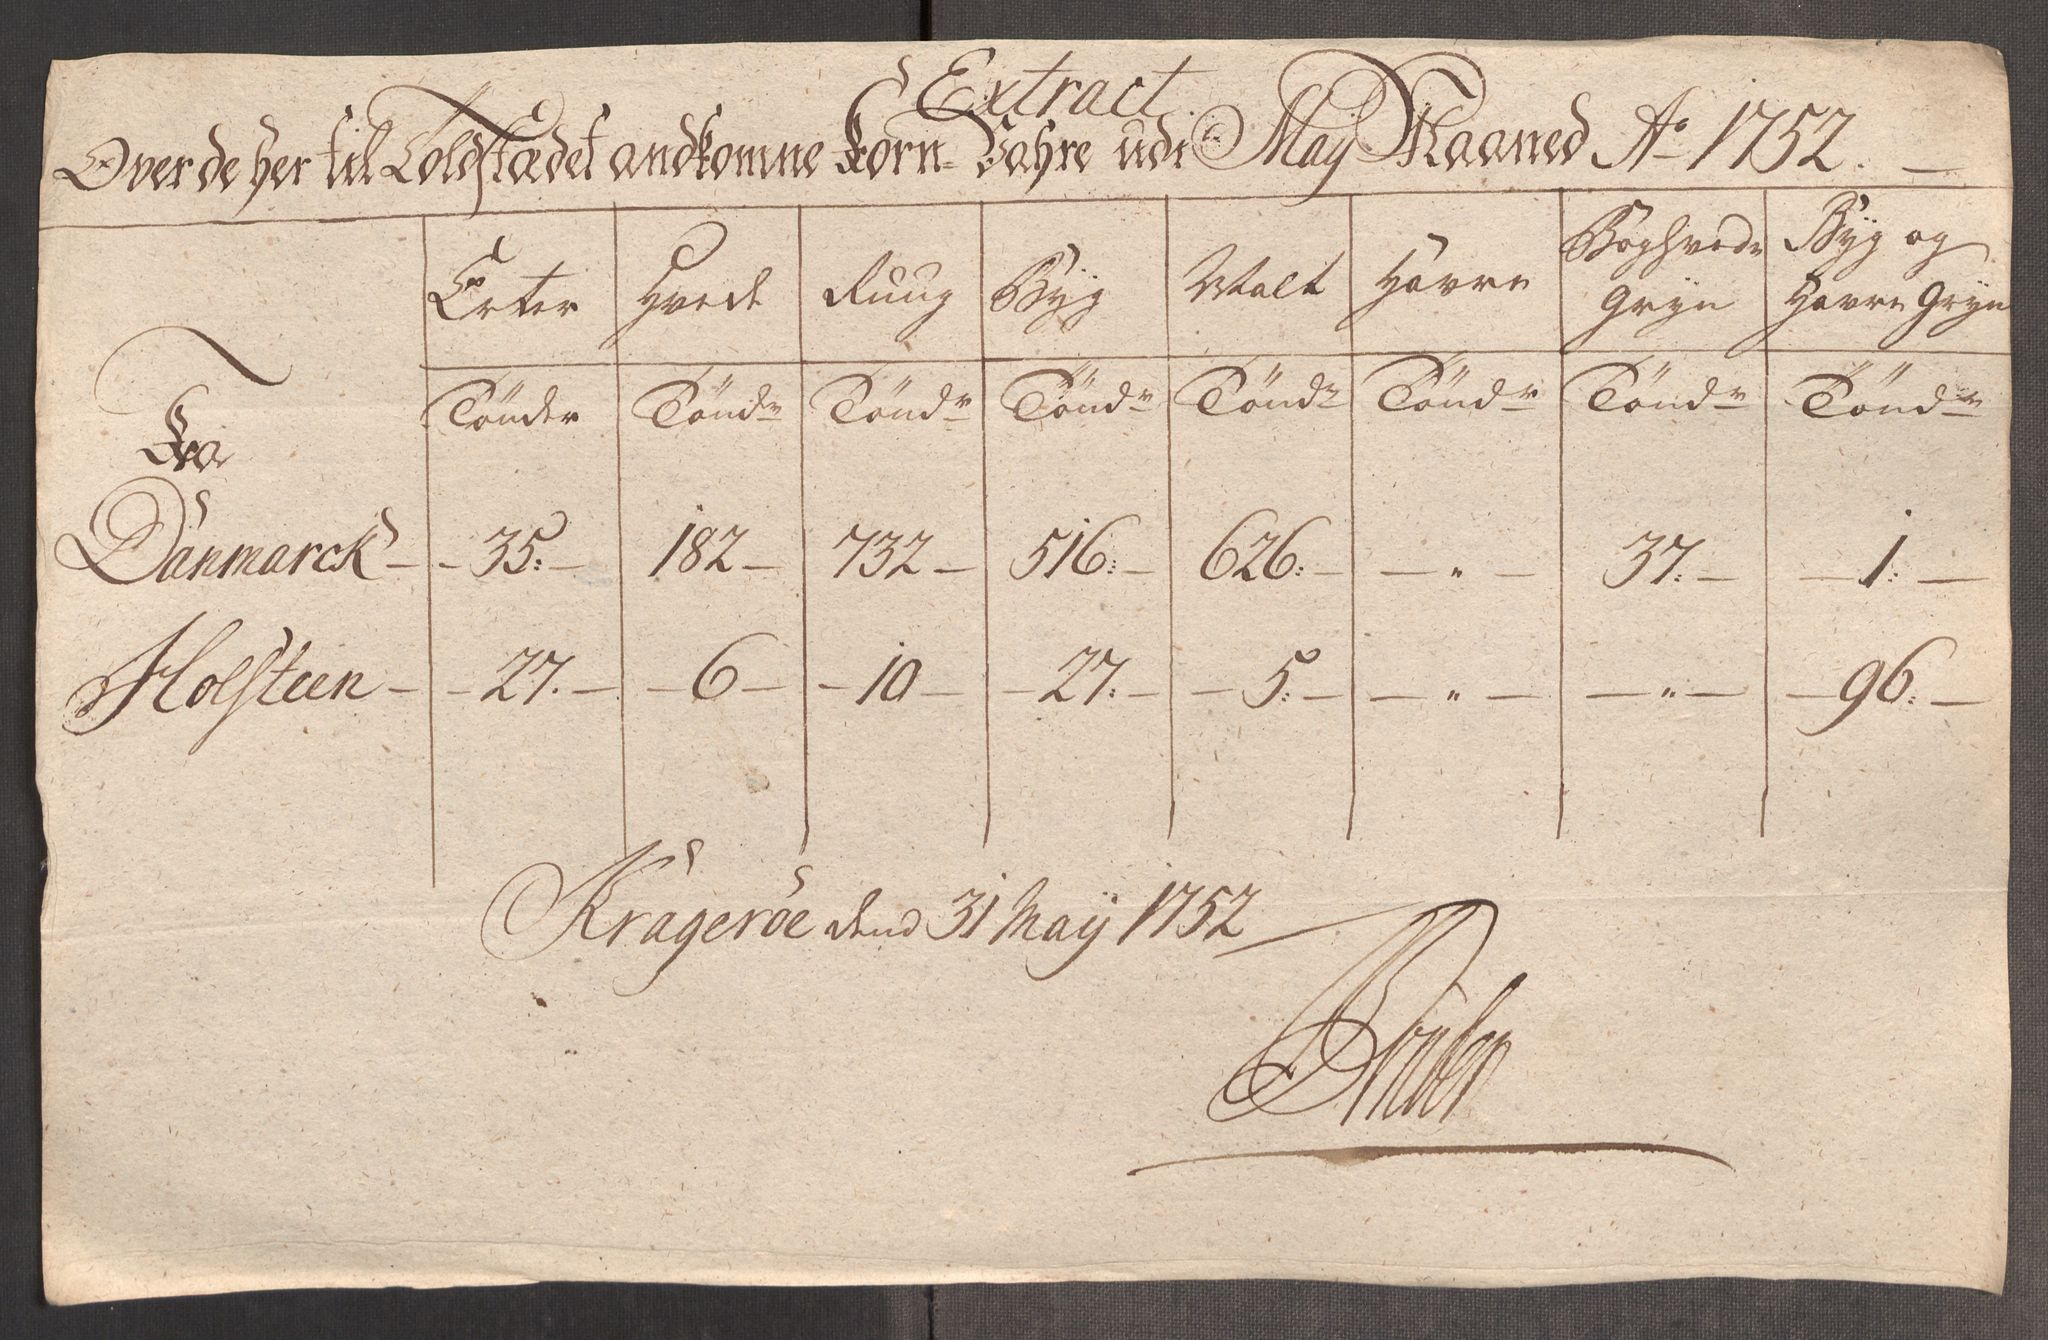 Extract
Over de her til Toldstædet andkomne Korn-Vahre udi May Maaned Ao 1752.
Erter Hvede Ruug Byg Malt Havre Boghvede Gryn Byg og Havre Gryn
Fra Tønder Tønder Tønder Tønder Tønder Tønder Tønder Tønder
Danmarck 35: 182 732 516: 626: " 37: 1:
Holsteen 27. 6 10 27: 5: " " 96:
Kragerøe dend 31 May 1752